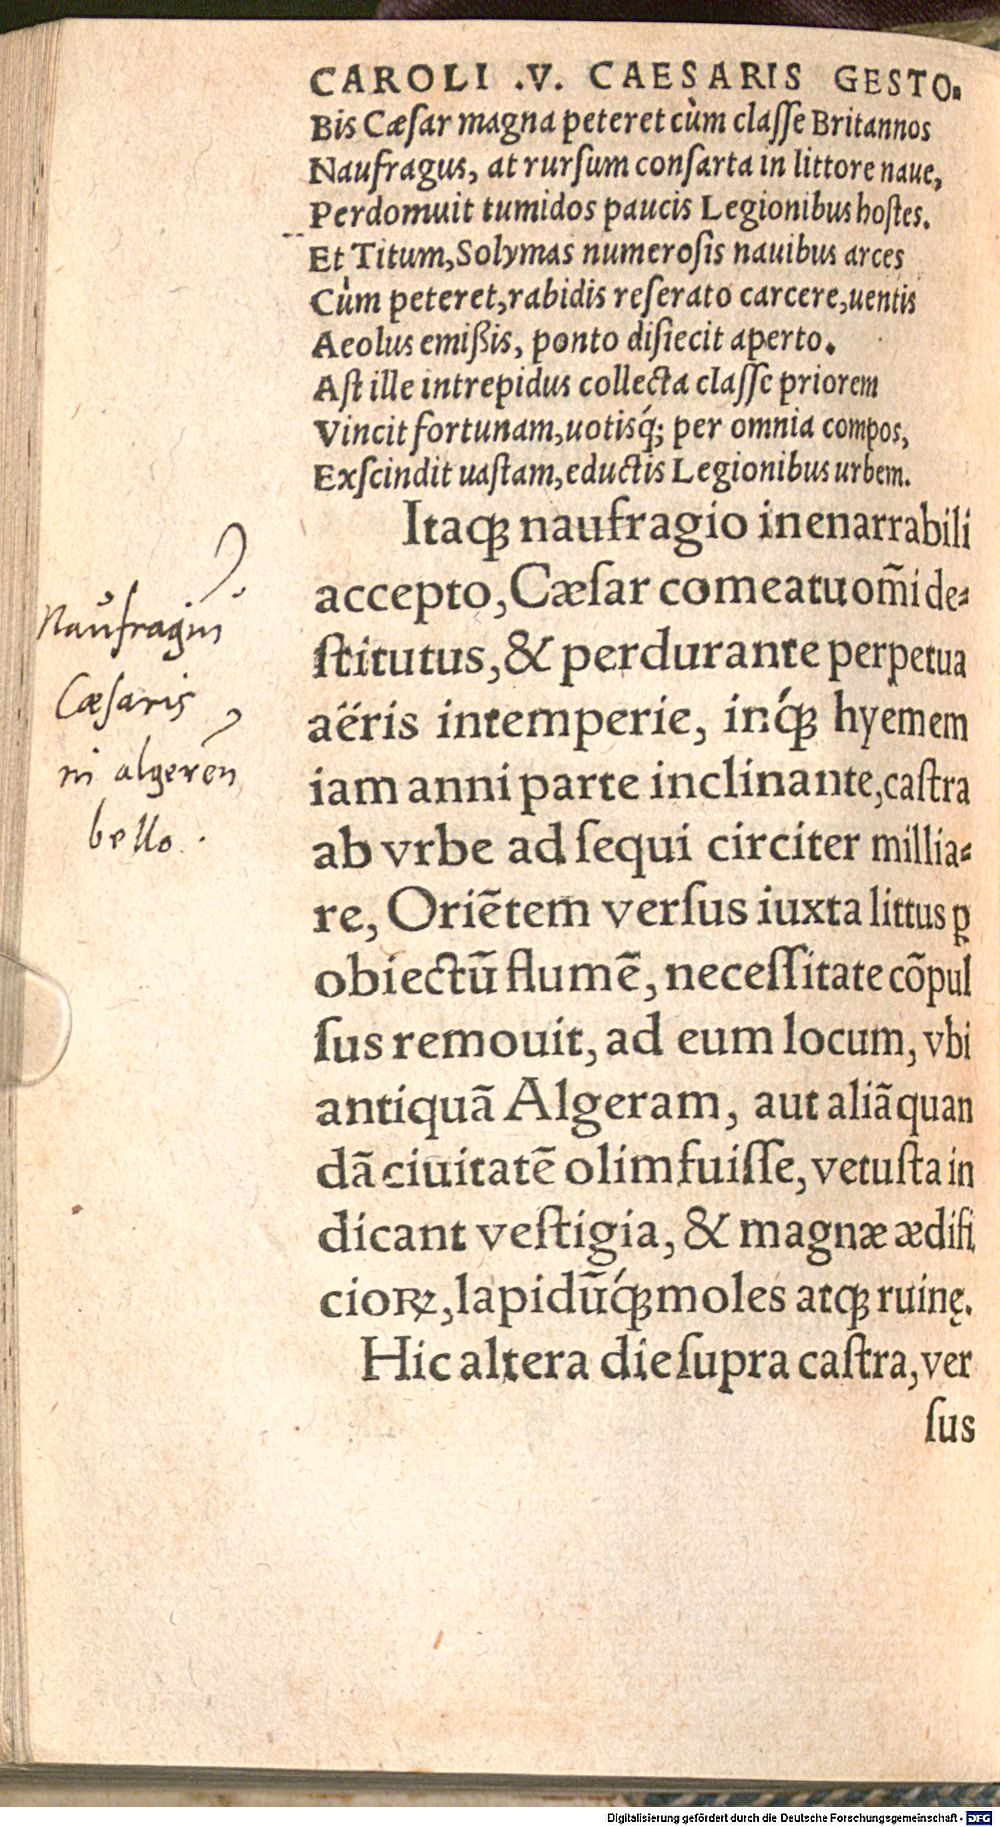 CAROLI .V. CAESARIS GESTO.
Bis Cæſar magna peteret cùm claſſe Britannos
Naufragus, at rurſum conſarta in littore naue,
Perdomuit tumidos paucis Legionibus hoſtes.
Et Titum, Solymas numeroſis nauibus arces
Cùm peteret, rabidis reſerato carcere, uentis
Aeolus emißis, ponto diſiecit aperto.
Aſt ille intrepidus collecta claſſe priorem
Vincit fortunam, uotisq́; per omnia compos,
Exſcindit uaſtam, eductis Legionibus urbem.
Itaqꝫ naufragio inenarrabili
accepto, Cæſar comeatu om̃i de⸗
ſtitutus, & perdurante perpetua
aëris intemperie, inq́ꝫ hyemem
iam anni parte inclinante, caſtra
ab vrbe ad ſequi circiter millia⸗
re, Oriẽtem verſus iuxta littus ꝑ
obiectũ flumẽ, neceſſitate cõpul
ſus remouit, ad eum locum, vbi
antiquã Algeram, aut aliã quan
dã ciuitatẽ olim fuiſſe, vetuſta in
dicant veſtigia, & magnæ ædifi
cioꝝ, lapidũq́ꝫ moles atqꝫ ruinę.
Hic altera die ſupra caſtra, ver
ſus
Naufragiu
Cæſaris
in algeren
bello.
Digitalisierung gefördert durch die Deutsche Forschungsgemeinschaft - DFG